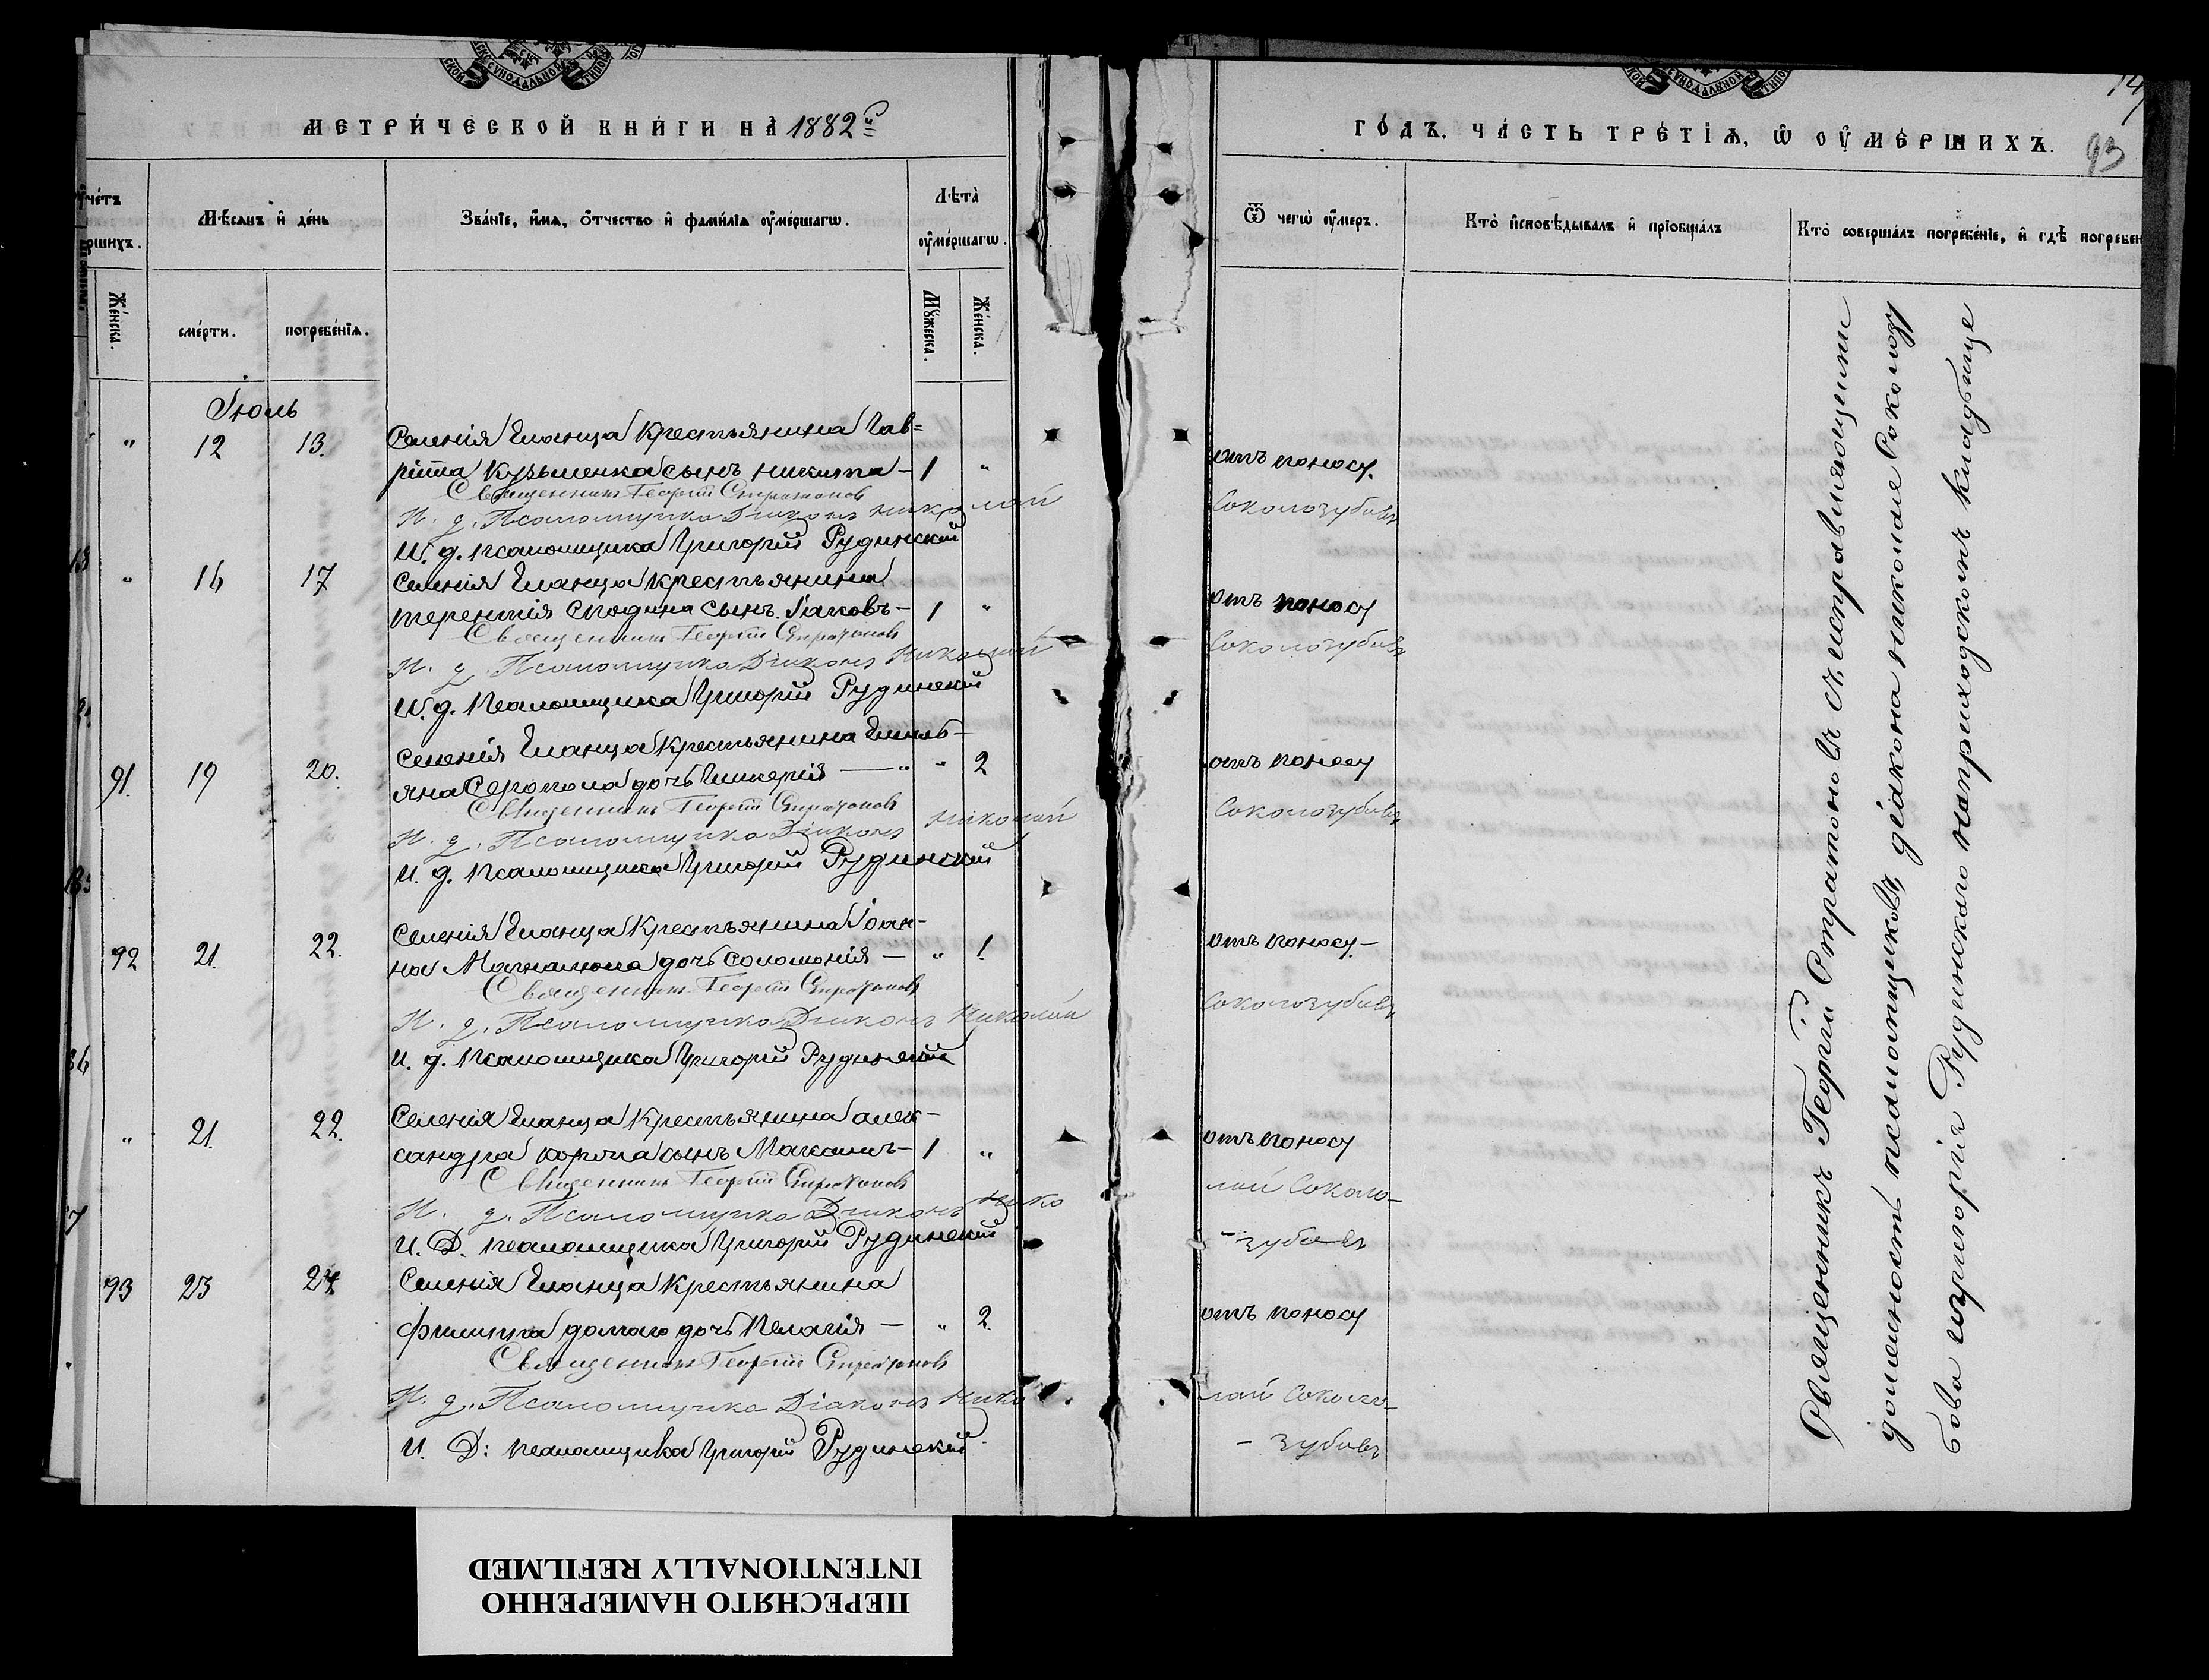 МЕТРИЧЕСКОЙ КНИГИ НА 1882й
ГОДЪ. ЧАСТЬ ТРЕТІЯ, Ѿ ОУМЕРШИХЪ.
93
Мѣсяцъ и день
Званіе, имя, отчество и фамилія оумершагѡ.
Лѣта оумершагѡ.
Ѿ чегѡ оумеръ.
Кто исповѣдывалъ и пріобщалъ
Кто совершалъ погребеніе, и гдѣ погребен
Женска.
смерти.
погребенія.
Мужеска.
Женска.
Іюль
" 12 13. Селенія Гланца Крестьянина Гав-
ріила Кузьменка сынъ Никита - 1 " отъ поносу.
Священникъ Георгій Стратоновъ
И. д. Псаломщика Діаконъ Николай Соколозубовъ
И. д. псаломщика Григорій Рудинскій
" 16 17 Селенія Гланца Крестьянина
Терентія Сподина сынъ Іаковъ - 1 " отъ поносу
Священникъ Георгій Стратоновъ
И. д. Псаломщика Діаконъ Николай Соколозубовъ
И. д. псаломщика Григорій Рудинскій
Селенія Гланца Крестьянина Емиль-
91. 19 20. яна дочь Гликерія - " 2 отъ поносу
Священникъ Георгій Стратоновъ
И. д. Псаломщика Діаконъ Николай Соколозубовъ
И. д. псаломщика Григорій Рудинскій
Селенія Гланца Крестьянина Іоан-
92 21. 22. на дочь Соломонія - " 1. отъ поносу. -
Священникъ Георгій Стратоновъ
И. д. Псаломщика Діаконъ Николай Соколозубовъ
И. д. псаломщика Григорій Рудинскій
Селенія Гланца Крестьянина Алек-
" 21. 22. сандра сынъ Максимъ - 1 " отъ поносу
Священникъ Георгій Стратоновъ
И. д. Псаломщика Діаконъ Нико лай Соколо-
И. Д. псаломщика Григорій Рудинскій - зубовъ
93 23 24 Селенія Гланца Крестьянина
Филиппа дочь Пелагія - " 2. отъ поносу
Священникъ Георгій Стратоновъ
И. д. Псаломщика Діаконъ Нико лай Соколо-
И. Д: псаломщика Григорій Рудинскій - зубовъ
Священникъ Георгій Стратоновъ съ исправляющими
должность псаломщиковъ, діакона Николае Соколозу
бова и Григорія Рудинского на приходскомъ кладбище
ПЕРЕСНЯТО НАМЕРЕННО
INTENTIONALLY REFILMED